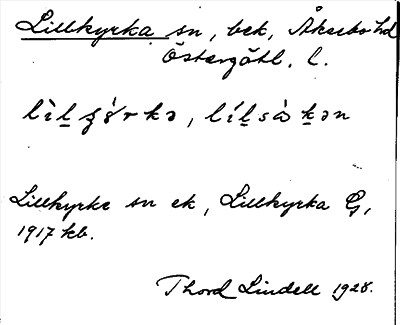 Lillkyrka sn, bek, Åkerbo hd
Östergötl. l.
lìlʒɣ́rkə, lílsàkən
Lillkyrke sn ek, Lillkyrka G,
1917 kb.
Thord Lindell 1928.